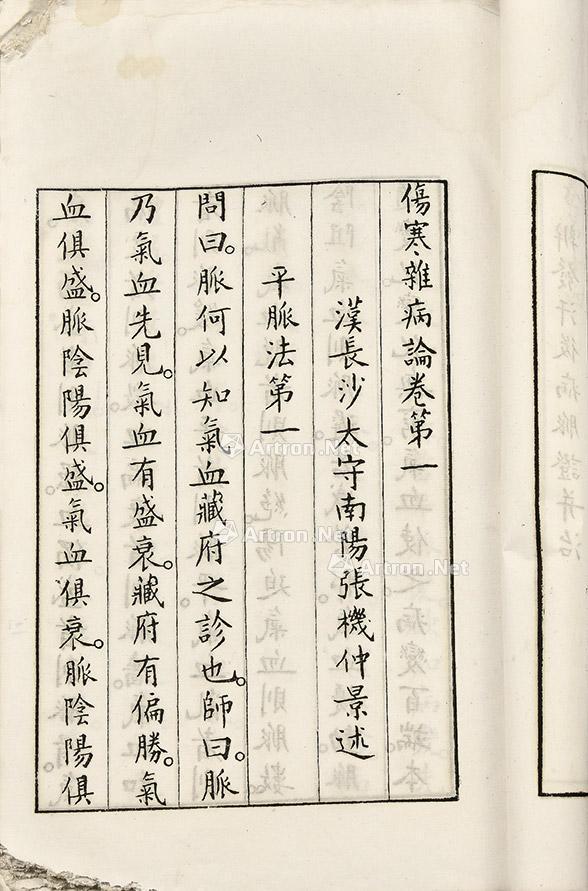 傷寒雜病論卷第一
漢長沙太守南陽張機仲景述
平脈法第一
問曰。脈何以知氣血藏府之診也。師曰。脈
乃氣血先見。氣血有盛衰。藏府有偏勝。氣
血俱盛。脈陰陽俱盛。氣血俱衰。脈陰陽俱
Artron.Net
Artron.Net
Artron.Net
Artron.Net